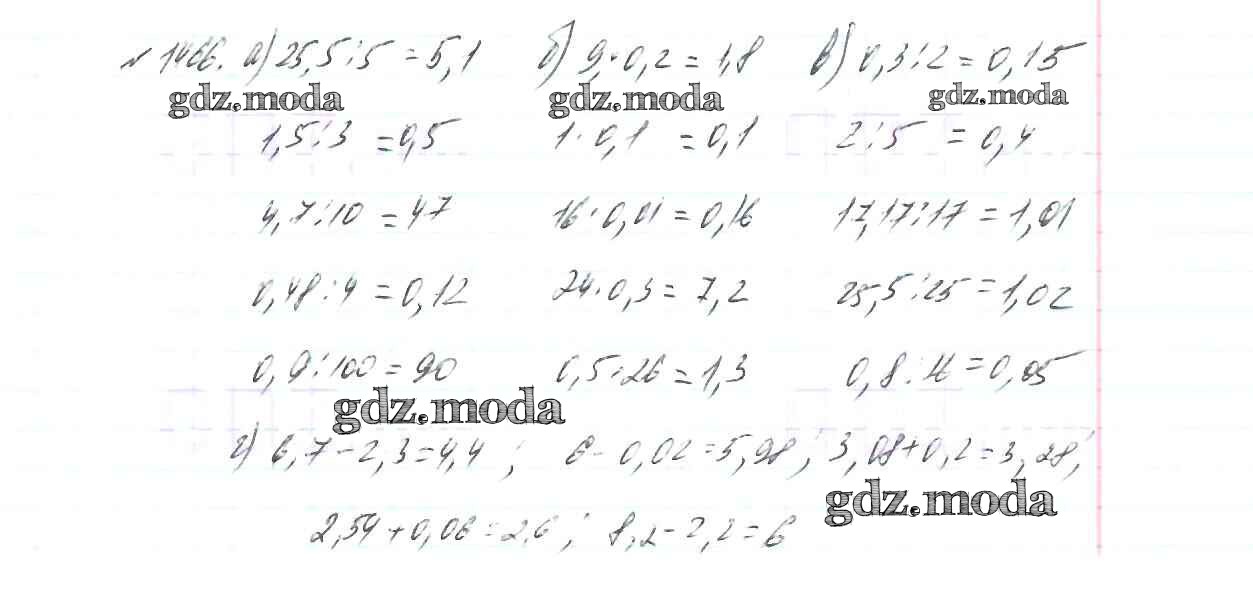 № 1466. а) 25,5:5 = 5,1 б) 9·0,2 = 1,8 в) 0,3:2 = 0,15
gdz.moda gdz.moda gdz.moda
1,5:3 = 0,5 1·0,1 = 0,1 2:5 = 0,4
4,7:10 = 47 16·0,01 = 0,16 17,17:17 = 1,01
0,48:4 = 0,12 24·0,3 = 7,2 25,5:25 = 1,02
0,9:100 = 90 0,5:26 = 1,3 0,8:16 = 0,05
gdz.moda
г) 6,7-2,3=4,4 ; 6-0,02=5,98 ; 3,08+0,2=3,28;
gdz.moda
2,54+0,06=2,6 ; 8,2-2,2=6